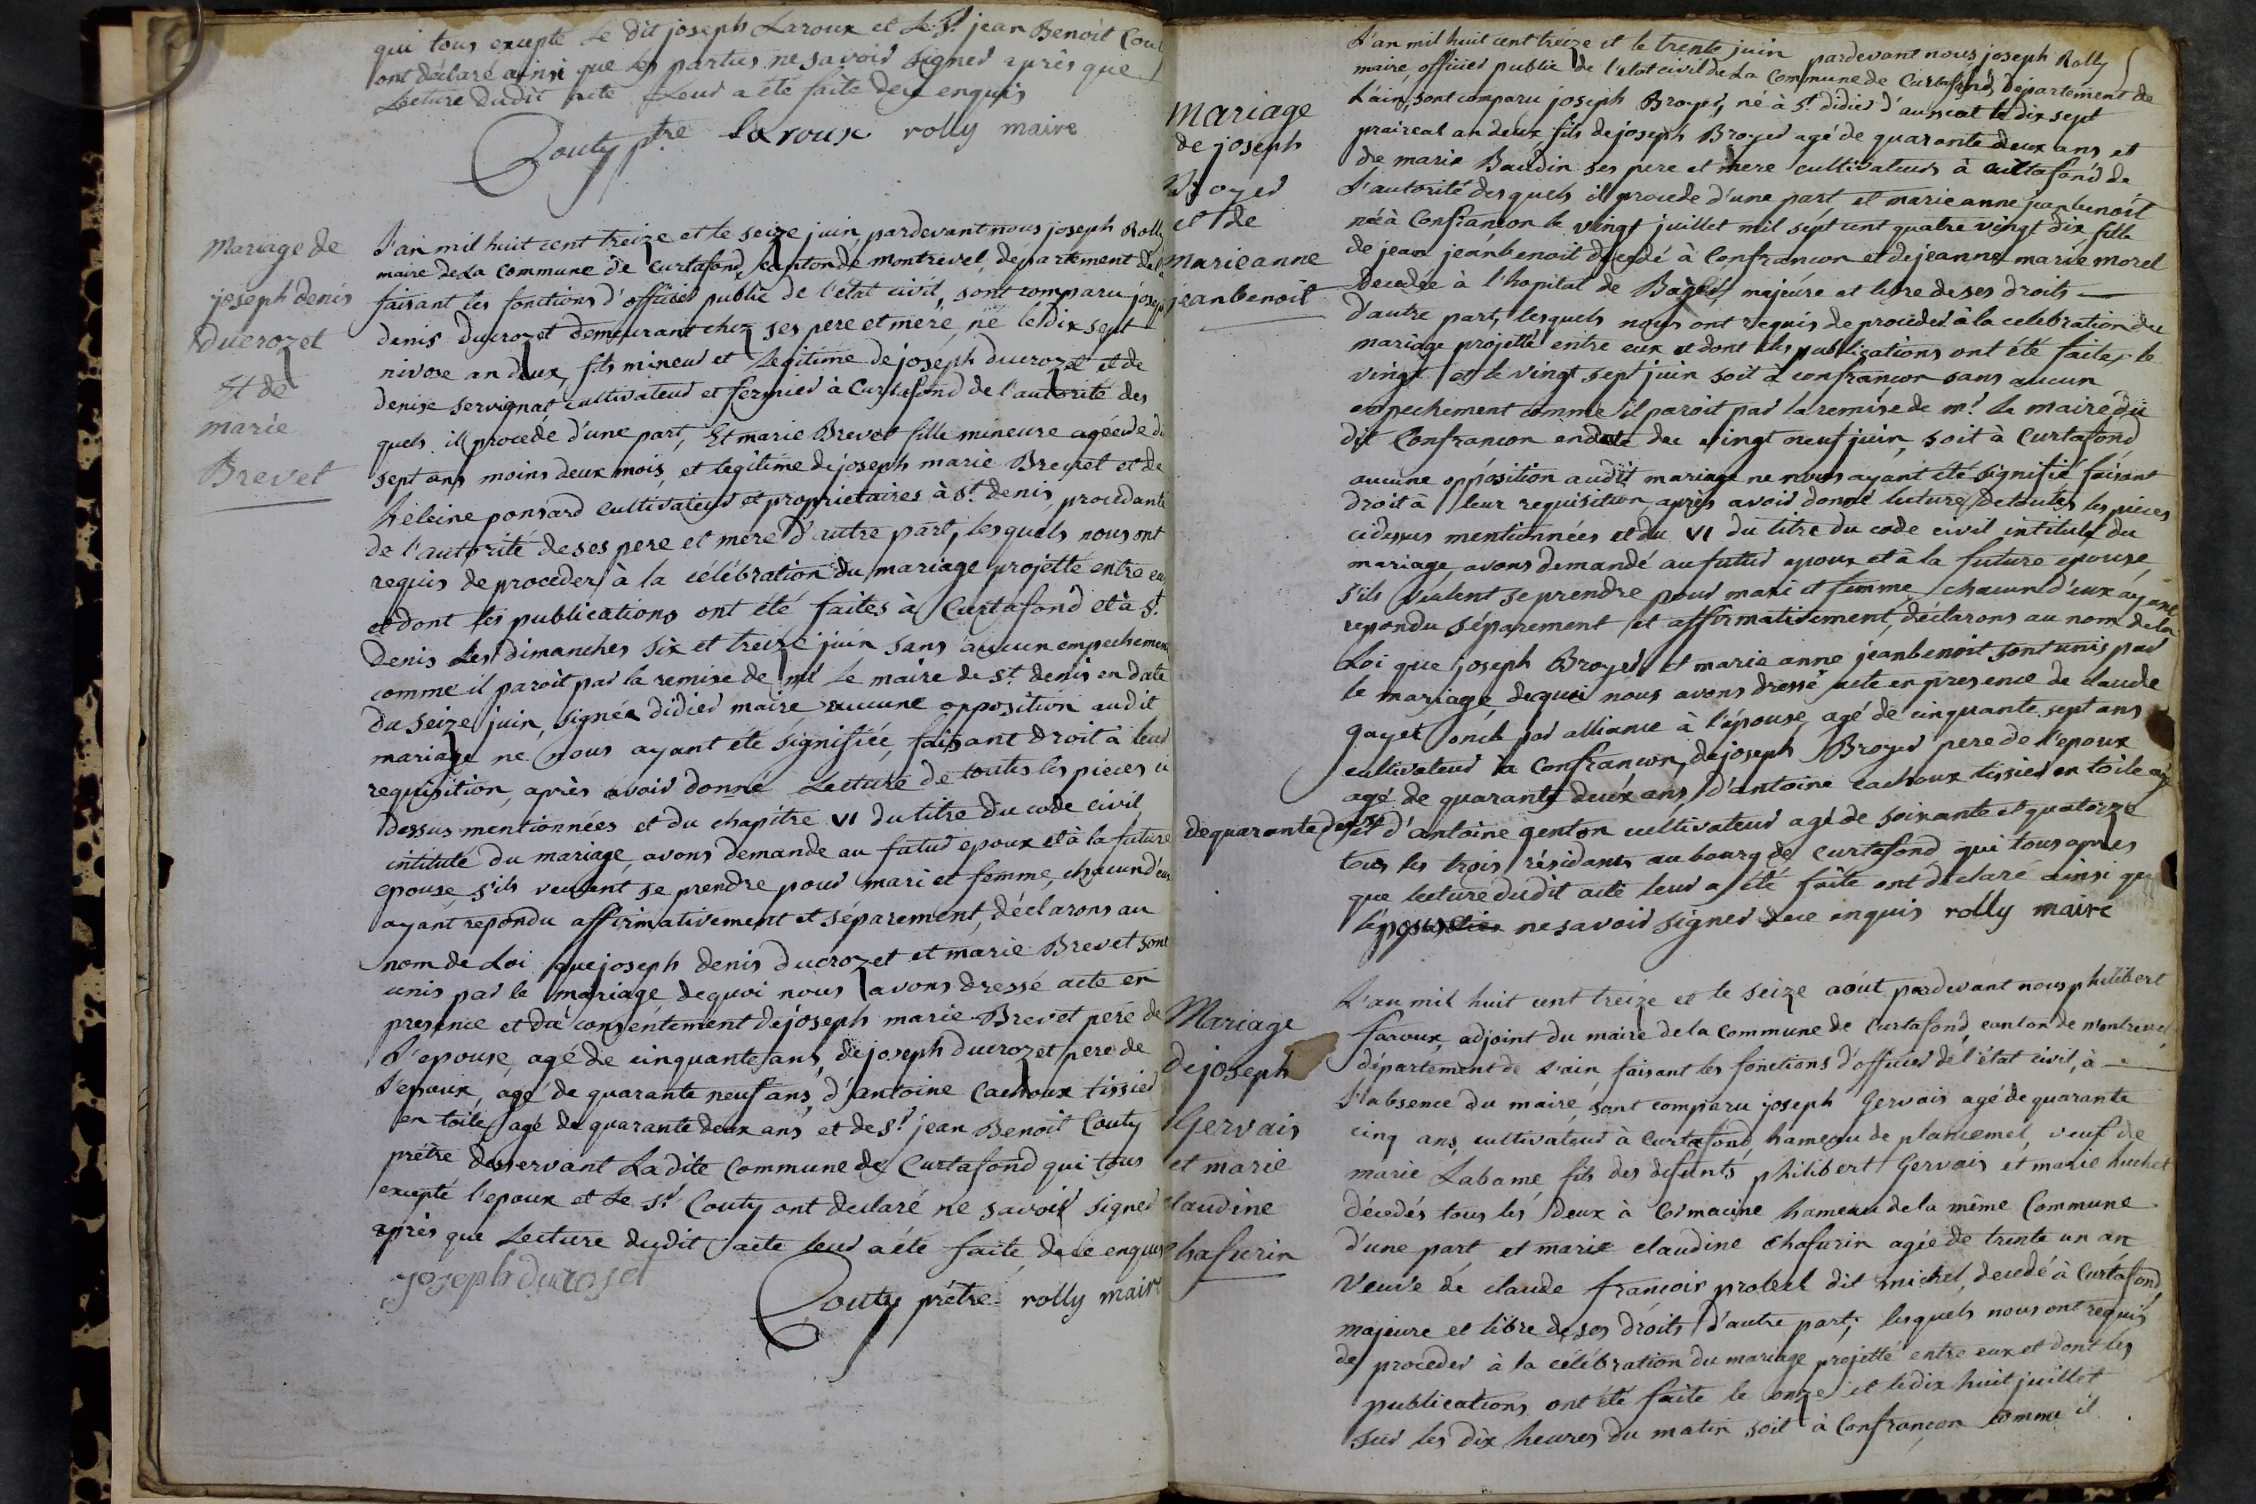 qui tous excepté Le dit joseph Laroux et Le Sr. jean Benoit Cout
ont déclaré ainsi que les parties ne savoir signer après que
Lecture dudit acte Leur a été faite de ce enquis
Couty ptre laroux rolly maire
Mariage de
joseph denis
Ducrozet
Et de
marie
Brevet
L'an mil huit cent treize et le seize juin, pardevant nous joseph Rolly
maire de La Commune de Curtafond, canton de montrevel, département de l
faisant les fonctions d'officier public de l'etat civil, sont comparu joseph
denis Ducrozet demeurant chez ses pere et mere, né le dix sept
nivose an deux, fils mineur et Légitime de joseph ducrozet et de
denise servignat cultivateur et fermier à Curtafond de l'autorité des
quels il procede d'une part, Et marie Brevet fille mineure agée de d
sept ans moins deux mois, et legitime de joseph marie Brevet et de
héleine ponsard cultivateurs et proprietaires à St. denis, procédante
de l'autorité de ses pere et mere d'autre part, lesquels nous ont
requis de proceder à la célébration du mariage projetté entre eu
et dont les publications ont été faites à Curtafond et à St.
Denis Les dimanches six et treize juin sans aucun empechement
comme il paroit par la remise de mr. Le maire de St. denis en date
du seize juin, signée didier maire aucune opposition audit
mariage ne nous ayant été signifiée, faisant droit à leur
requisition, après avoir donné Lecture de toutes les pièces ci
dessus mentionnées et du chapitre VI du titre du code civil
intitulé du mariage, avons demandé au futur epoux et à la future
epouse, s'ils veulent se prendre pour mari et femme, chacun d'eux
ayant repondu affirmativement et séparement, déclarons au
nom de Loi que joseph denis ducrozet et marie Brevet sont
unis par le mariage de quoi nous avons dressé acte en
presence et du consentement de joseph marie Brevet pere de
L'epouse, agé de cinquante ans, de joseph ducrozet pere de
L'epoux, agé de quarante neuf ans, d'antoine Cachoux tissier
en toile, agé de quarante deux ans et de Sr. jean Benoit Couty
prêtre desservant Ladite Commune de Curtafond qui tous
excepté l'epoux et Le Sr. Couty ont declaré ne savoir signer
après que Lecture dudit acte leur a été faite, de ce enquis
joseph ducrozet
Couty prêtre rolly maire
Mariage
de joseph
Broyer
et de
marieanne
jeanbenoit
L'an mil huit cent treize et le trente juin pardevant nous joseph Rolly
maire, officier public de l'etat civil de La Commune de Curtafond, département de
L'ain, sont comparu joseph Broyer, né à St. didier d'aussiat le dix sept
praireal an deux, fils de joseph Broyer agé de quarante deux ans et
de marie Baudin ses pere et mere cultivateurs à curtafond de
L'autorité des quels il procede d'une part et marieanne jeanbenoit
née à Confrançon le vingt juillet mil sept cent quatre vingt dix fille
de jean jeanbenoit décédé à Confrançon et de jeanne marie morel
Decedée à l'hopital de Bagé, majeure et libre de ses droits
d'autre part, lesquels nous ont requis de proceder à la celebration du
mariage projetté entre eux et dont les publications ont été faites le
vingt et le vingt sept juin soit à confrançon sans aucun
empechement comme il paroit par la remise de mr. Le maire du
dit Confrançon en date du vingt neuf juin, soit à Curtafond
aucune opposition audit mariage ne nous ayant été signifié faisant
droit à leur requisition, après avoir donné lecture de toutes les pièces
cidessus mentionnées et du VI du titre du code civil intitulé du
mariage, avons demandé au futur epoux et à la future epouse
s'ils veulent se prendre pour mari et femme, chacun d'eux ayant
repondu séparement et affirmativement, déclarons au nom de la
Loi que joseph Broyer et marie anne jeanbenoit sont unis par
le mariage, de quoi nous avons dressé acte en presence de claude
gayet oncle par alliance à l'épouse, agé de cinquante sept ans
cultivateur à Confrançon, de joseph Broyer pere de l'epoux
agé de quarante deux ans, d'antoine cachoux tissier en toile agé
de quarante deux et d'antoine genton cultivateur agé de soixante et quatorze
tous les trois résidants au bourg de Curtafond qui tous après
que lecture dudit acte leur a été faite ont déclaré ainsi que
ne savoir signer de ce enquis rolly maire
Mariage
de joseph
Gervais
et marie
claudine
Chafurin
L'an mil huit cent treize et le seize août pardevant nous philibert
faroux, adjoint du maire de la Commune de Curtafond, canton de montrevel,
département de L'ain, faisant les fonctions d'officier de l'état civil, à
L'absence du maire, sont comparu joseph Gervais agé de quarante
cinq ans, cultivateur à Curtafond, hameau de plancemel, veuf de
marie Labame fils des défunts philibert Gervais et marie huchet
décédés tous les deux à Cormacine hameau de la même Commune
d'une part, et marie claudine Chafurin agée de trente un an
Veuve de claude françois protel dit michel, decedé à Curtafond,
majeure et libre de ses droits d'autre part, lesquels nous ont requis
de proceder à la célébration du mariage projetté entre eux et dont les
publications ont été faite le onze et le dix huit juillet
sur les dix heures du matin soit à Confrançon comme il